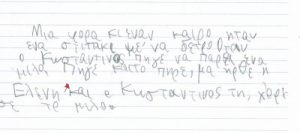 Μια φορα κι εναν καιρο ηταν
ενα σπιτακι με να δεντρο οταν
ο Κωσταντινος πηγε να παρει ενα
μιλο πηγε κε το πηρε, μα ηρθε η
Ελενη και ο Κωσταντινος τη, χαρι
σε το μιλο